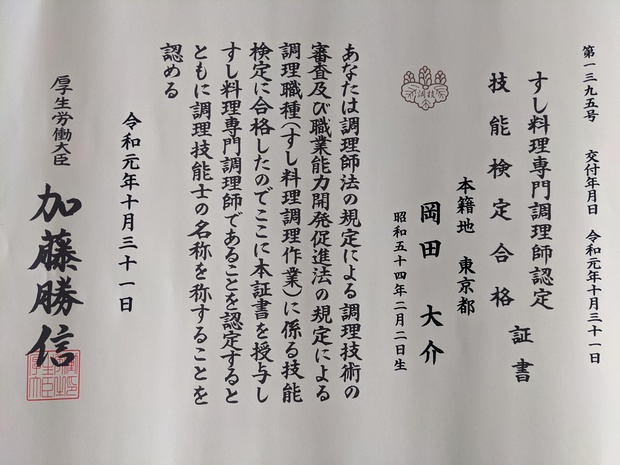 第一三九五号 交付年月日 令和元年十月三十一日
すし料理専門調理師認定
技能検定合格
証書
本籍地 東京都
岡田 大介
昭和五十四年二月二日生
あなたは調理師法の規定による調理技術の
審査及び職業能力開発促進法の規定による
調理職種(すし料理調理作業)に係る技能
検定に合格したのでここに本証書を授与し
すし料理専門調理師であることを認定すると
ともに調理技能士の名称を称することを
認める
令和元年十月三十一日
厚生労働大臣
加藤勝信